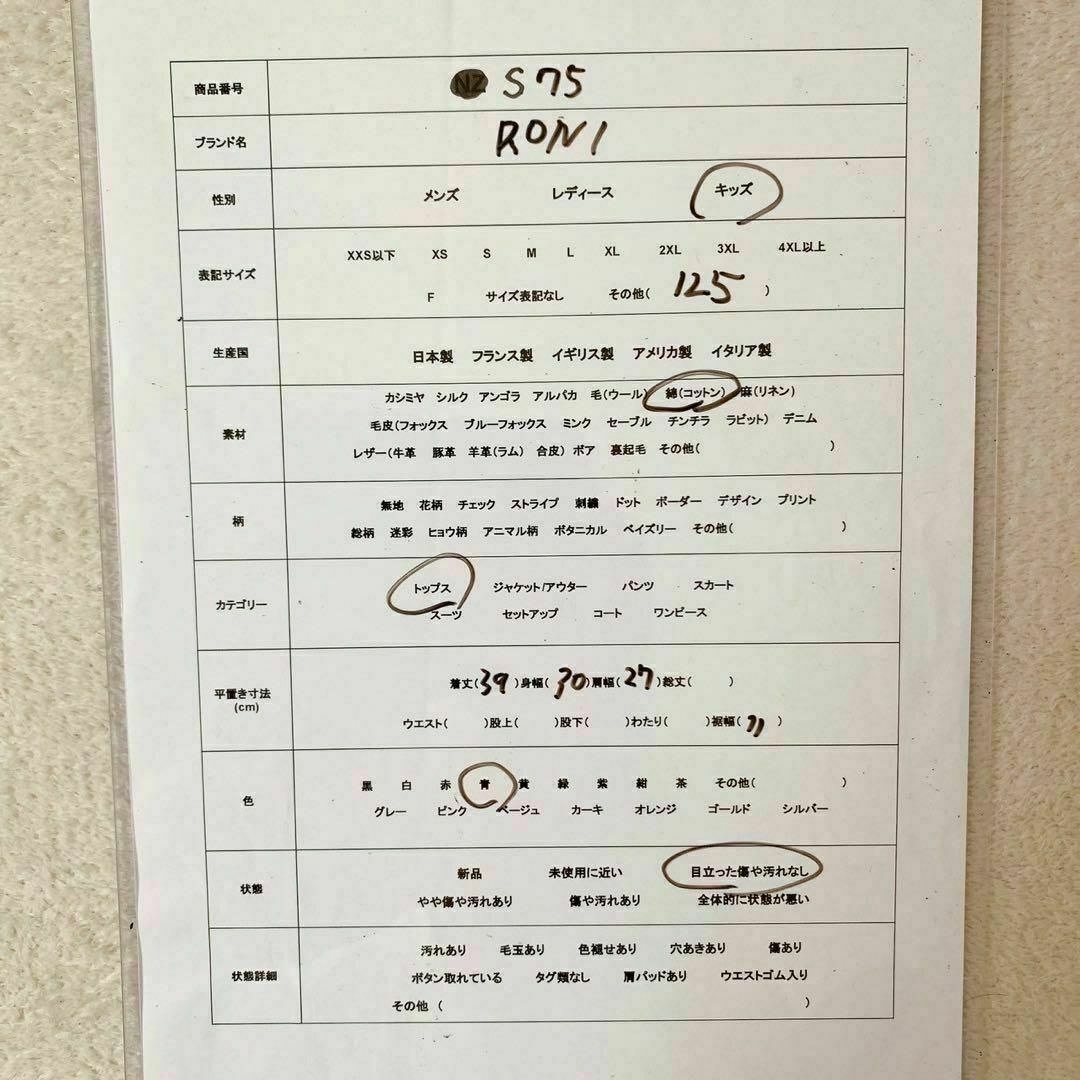 商品番号 NZ S75
ブランド名 RONI
性別 メンズ レディース キッズ
表記サイズ
XXS以下 XS S M L XL 2XL 3XL 4XL以上
F サイズ表記なし その他( 125 )
生産国 日本製 フランス製 イギリス製 アメリカ製 イタリア製
素材
カシミヤ シルク アンゴラ アルパカ 毛(ウール) 綿(コットン) 麻(リネン)
毛皮(フォックス ブルーフォックス ミンク セーブル チンチラ ラビット) デニム
レザー(牛革 豚革 羊革(ラム) 合皮) ボア 裏起毛 その他( )
柄
無地 花柄 チェック ストライプ 刺繍 ドット ボーダー デザイン プリント
総柄 迷彩 ヒョウ柄 アニマル柄 ボタニカル ペイズリー その他( )
カテゴリー
トップス ジャケット/アウター パンツ スカート
スーツ セットアップ コート ワンピース
平置き寸法
(cm)
着丈(39)身幅(30)肩幅(27)総丈( )
ウエスト( )股上( )股下( )わたり( )裾幅( )
色
黒 白 赤 青 黄 緑 紫 紺 茶 その他( )
グレー ピンク ベージュ カーキ オレンジ ゴールド シルバー
状態
新品 未使用に近い 目立った傷や汚れなし
やや傷や汚れあり 傷や汚れあり 全体的に状態が悪い
状態詳細
汚れあり 毛玉あり 色褪せあり 穴あきあり 傷あり
ボタン取れている タグ類なし 肩パッドあり ウエストゴム入り
その他 ( )